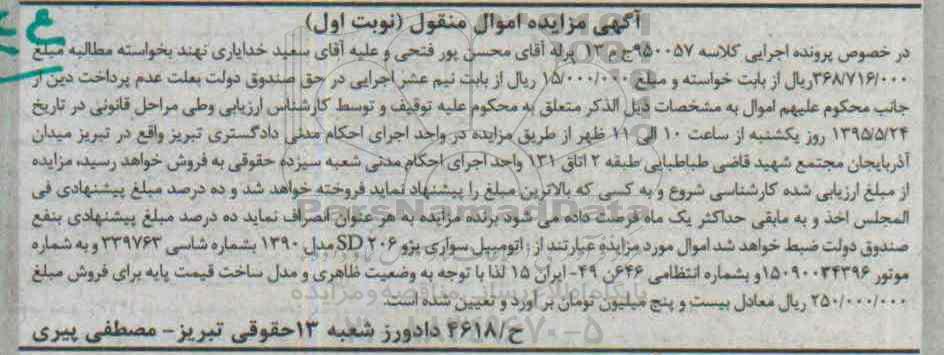 آگهی مزایده اموال منقول (نوبت اول)
در خصوص پرونده اجرایی کلاسه ۹۵۰۰۵۷ج م۱۳ برله آقای محسن پور فتحی و علیه آقای سعید خدایاری نهند بخواسته مطالبه مبلغ
۳۶۸/۷۱۶/۰۰۰ریال از بابت خواسته و مبلغ ۱۵/۰۰۰/۰۰۰ ریال از بابت نیم عشر اجرایی در حق صندوق دولت بعلت عدم پرداخت دین از
جانب محکوم علیهم اموال به مشخصات ذیل الذکر متعلق به محکوم علیه توقیف و توسط کارشناس ارزیابی وطی مراحل قانونی در تاریخ
۱۳۹۵/۵/۲۴ روز یکشنبه از ساعت ۱۰ الی ۱۱ ظهر از طریق مزایده در واحد اجرای احکام مدنی دادگستری تبریز واقع در تبریز میدان
آذربایجان مجتمع شهید قاضی طباطبایی طبقه ۲ اتاق ۱۳۱ واحد اجرای احکام مدنی شعبه سیزده حقوقی به فروش خواهد رسید، مزایده
از مبلغ ارزیابی شده کارشناسی شروع و به کسی که بالاترین مبلغ را پیشنهاد نماید فروخته خواهد شد و ده درصد مبلغ پیشنهادی فی
المجلس اخذ و به مابقی حداکثر یک ماه فرصت داده می شود برنده مزایده به هر عنوان انصراف نماید ده درصد مبلغ پیشنهادی بنفع
صندوق دولت ضبط خواهد شد اموال مورد مزایده عبارتند از: اتومبیل سواری پژو ۲۰۶ SD مدل ۱۳۹۰ بشماره شاسی ۳۳۹۷۶۳ و به شماره
موتور ۱۵۰۹۰۰۳۴۳۹۶و بشماره انتظامی ۶۴۶ن ۴۹- ایران ۱۵ لذا با توجه به وضعیت ظاهری و مدل ساخت قیمت پایه برای فروش مبلغ
۲۵۰/۰۰۰/۰۰۰ ریال معادل بیست و پنج میلیون تومان بر آورد و تعیین شده است.
ح/۴۶۱۸ دادورز شعبه ۱۳حقوقی تبریز- مصطفی پیری